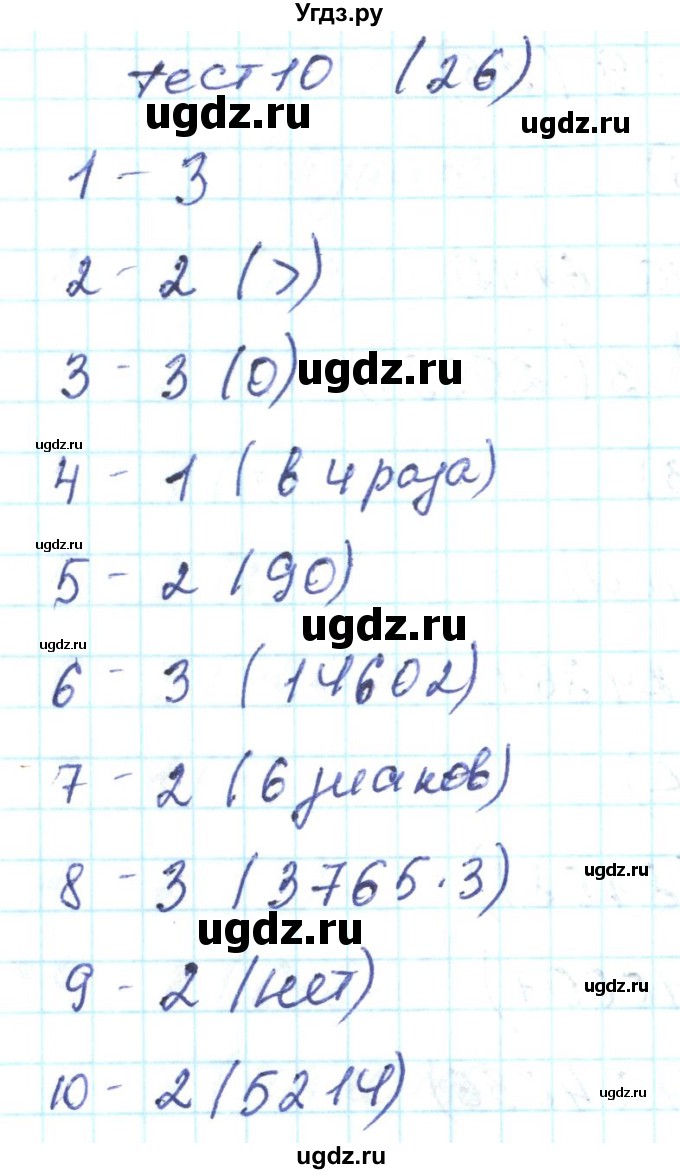 Угдз.ру
тест 10 (2б)
ugdz.ru
ugdz.ru
1 - 3
2 - 2 (>)
3 - 3 (0)
ugdz.ru
ugdz.ru
4 - 1 (в 4 раза)
ugdz.ru
5 - 2 (90)
ugdz.ru
ugdz.ru
6 - 3 (14602)
7 - 2 (6 знаков)
8 - 3 (3765·3)
ugdz.ru
ugdz.ru
9 - 2 (нет)
ugdz.ru
10 - 2 (5214)
ugdz.ru
ugdz.ru